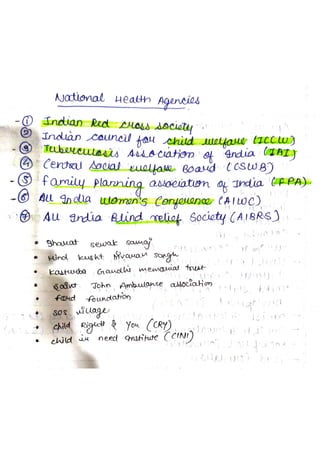 National Health Agencies
- ① Indian Red cross society
② Indian council for child welfare (ICCW)
- ③ Tuberculosis Association of India (IAI)
④ Central Social welfare Board (CSWB)
- ⑤ family planning association of India (FPA)
- ⑥ All India Women's Conference (AIWC)
⑦ All India Blind relief Society (AIBRS)
• Bharat sewak samaj
• Hind kusht Nivaran sangh
• Kasturba Gandhi memorial trust
• Saint John Ambulance association
• Ford foundation
• SOS village
• child Right & You (CRY)
• child in need Institute (CINI)